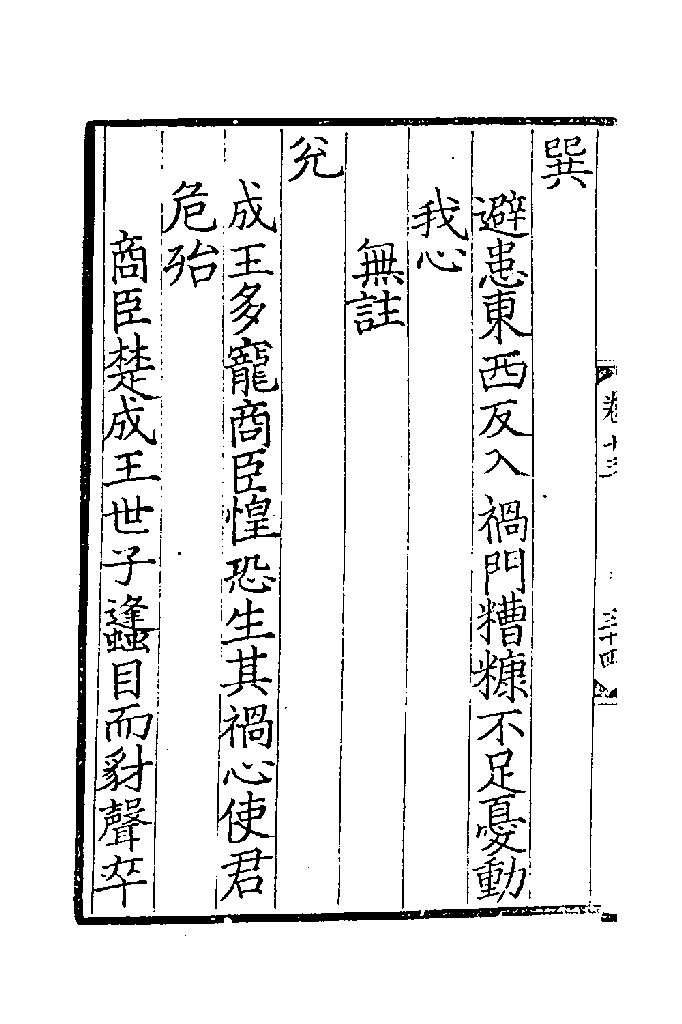 巽
避患東西反入禍門糟糠不足憂動
我心
無註
兊
成王多寵商臣惶恐生其禍心使君
危殆
商臣楚成王世子蠭目而豺聲卒
卷十三
三十四